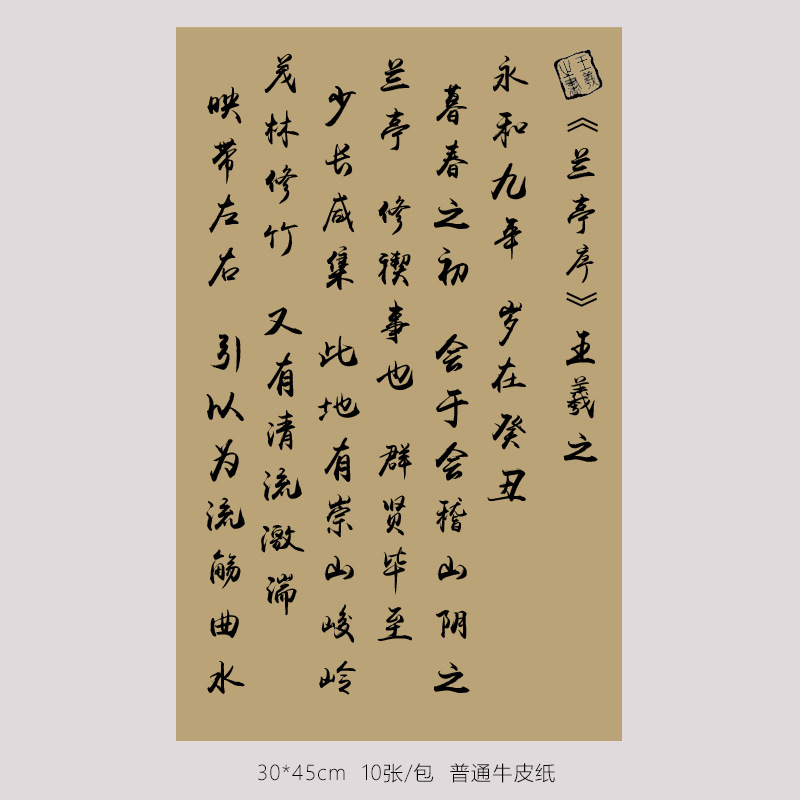 王羲之書
《兰亭序》王羲之
永和九年 岁在癸丑
暮春之初 会于会稽山阴之
兰亭 修禊事也 群贤毕至
少长咸集 此地有崇山峻岭
茂林修竹 又有清流激湍
映带左右 引以为流觞曲水
30*45cm 10张/包 普通牛皮纸